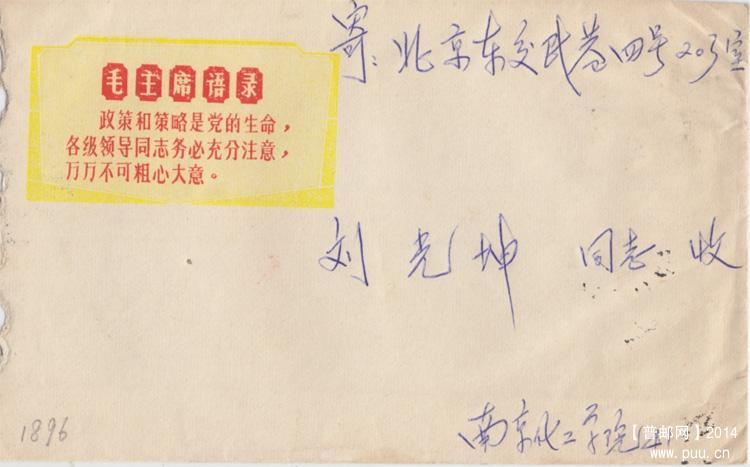 寄:北京东交民巷四号203室
毛主席语录
政策和策略是党的生命，
各级领导同志务必充分注意，
万万不可粗心大意。
刘光坤 同志 收
南京化工学院
1896
【普邮网】2014
www.puu.cn